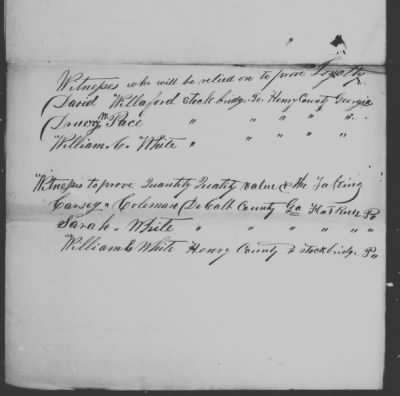 Witnesses who will be relied on to prove Loyalty
David Willaford Stockbridge Ga. Henry County Georgia
Drury W. Pace " " " " "
William C. White " " " " "
Witnesses to prove Quantity Quality value & the Taking
Carsey Coleman DeKalb County Ga Flat Rock Po
Sarah White " " " " " "
William C White Henry County Stockbridge Po